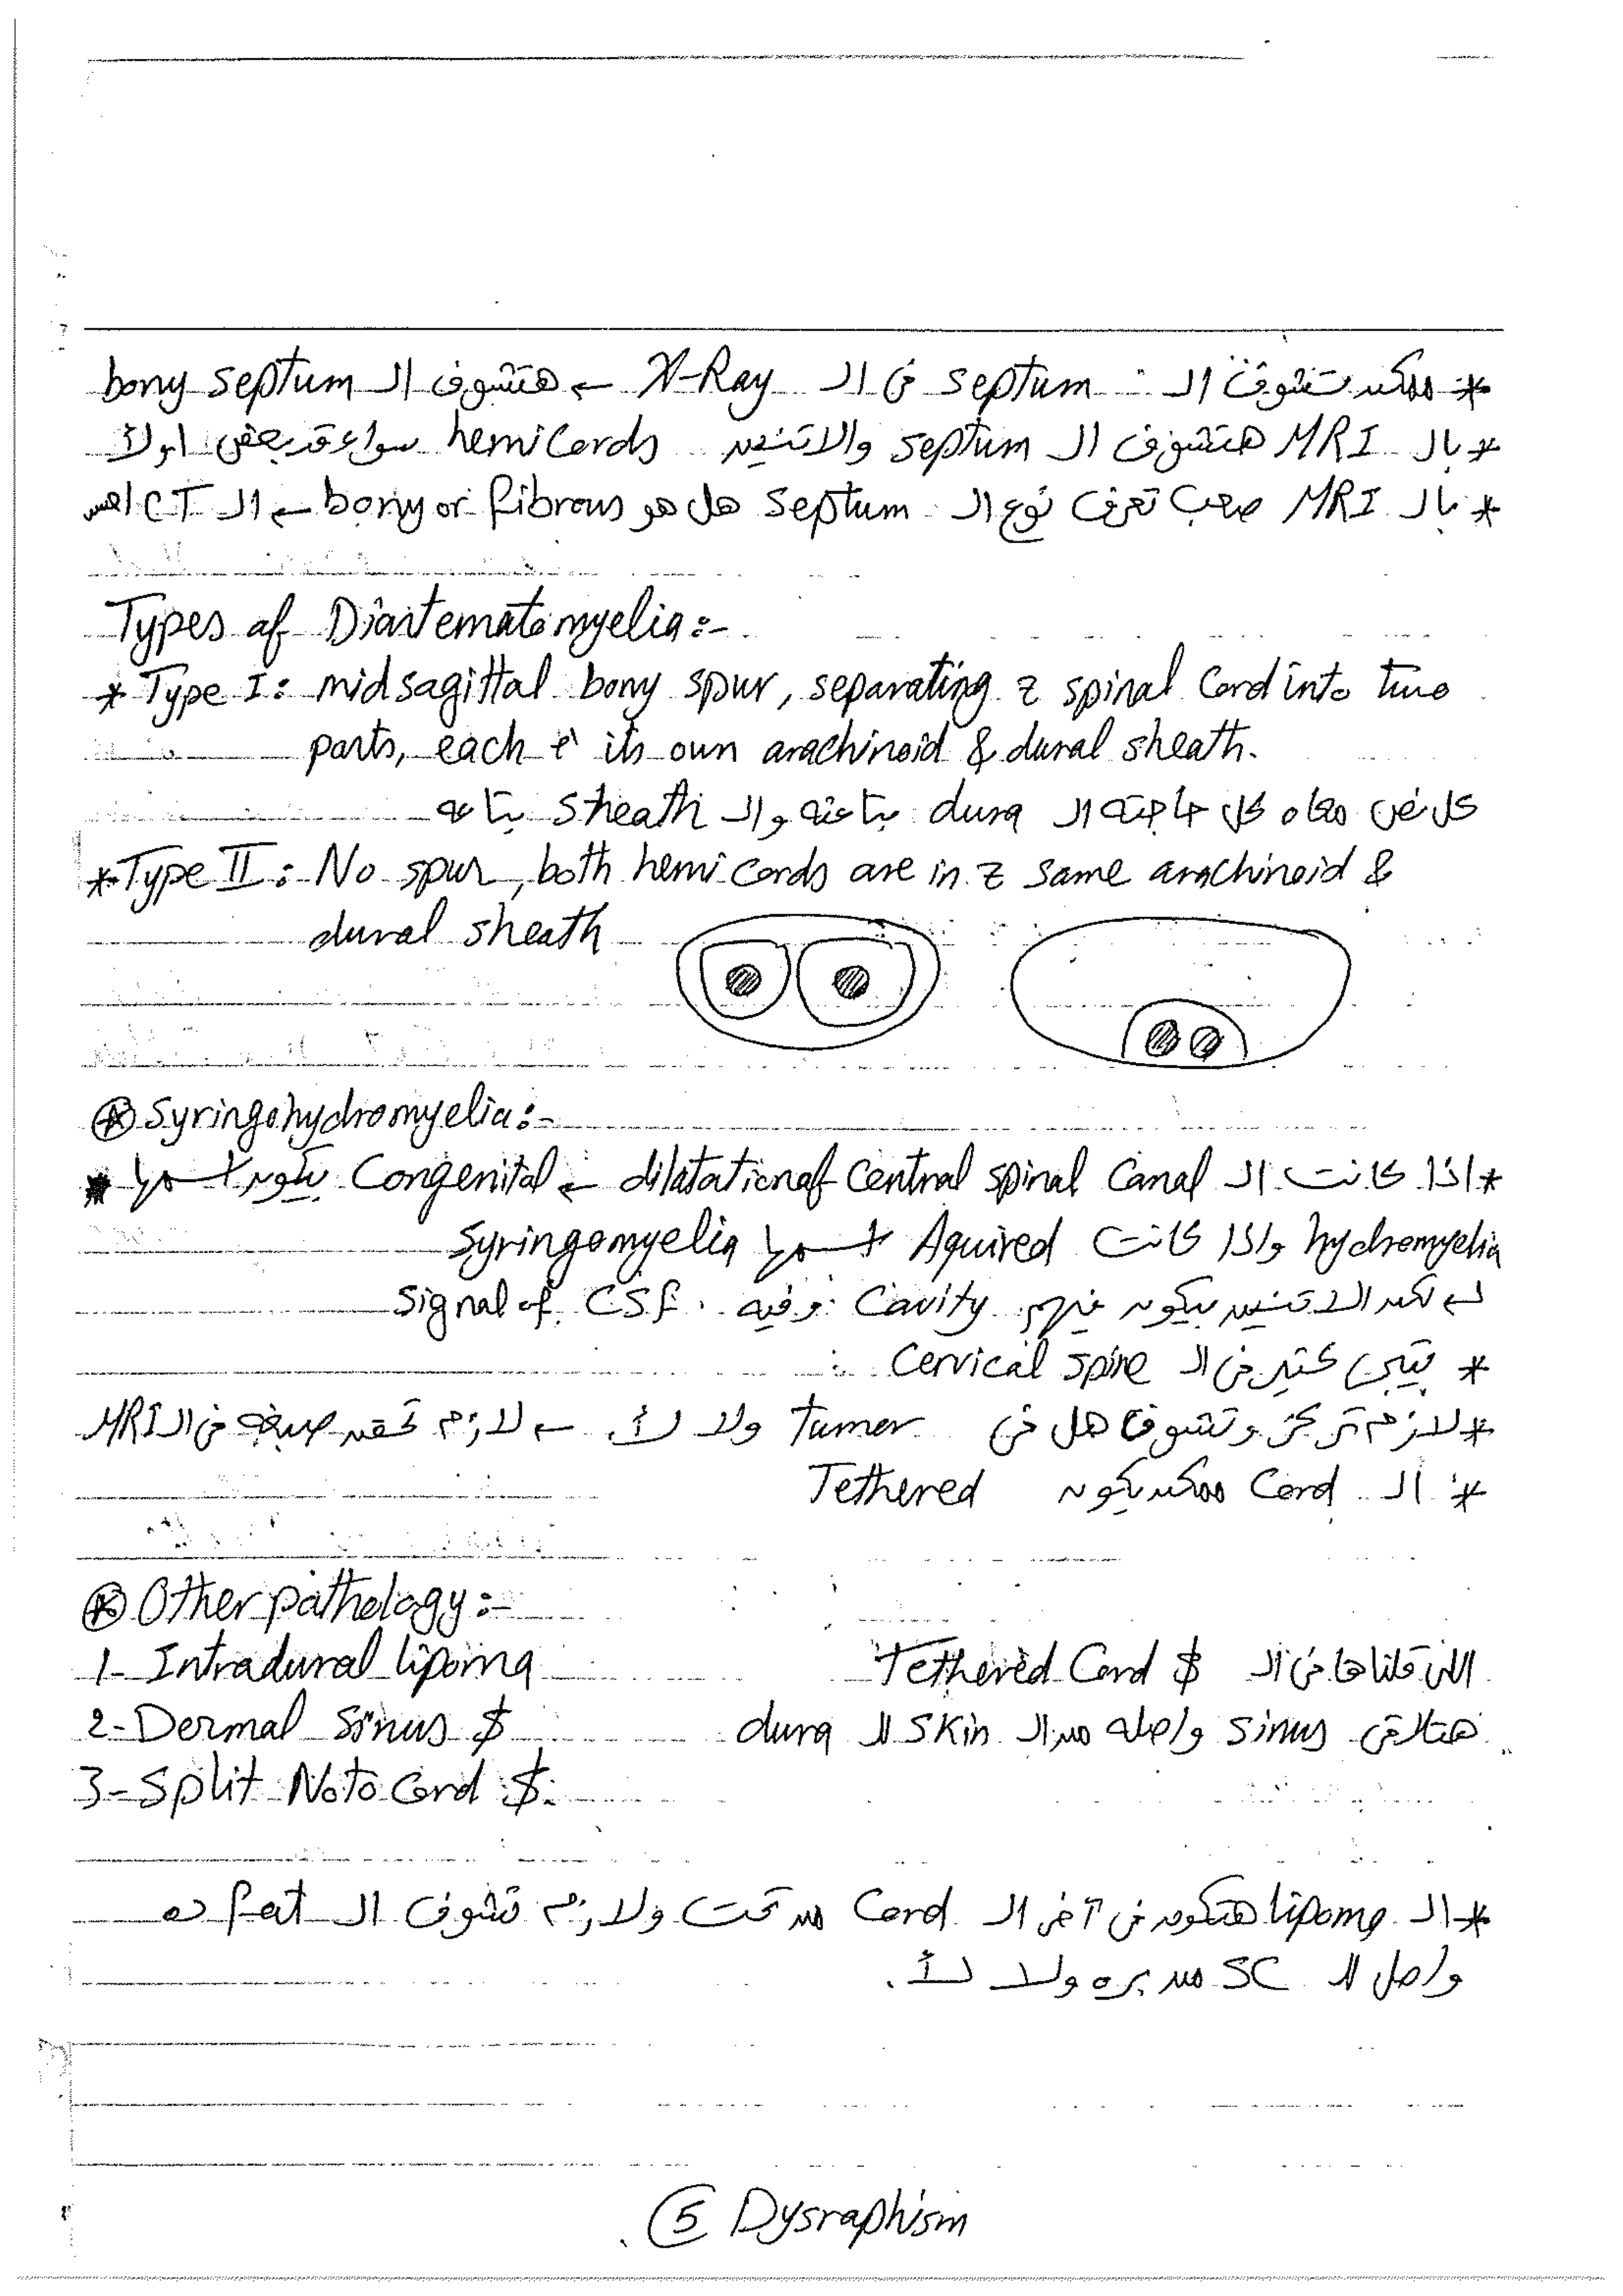 * ممكن تشوف ال septum فى ال X-Ray ← هتشوف ال bony septum
* بال MRI هتشوف ال septum والاتنين hemicords سواء قد بعض اولأ
* بال MRI صعب تعرف نوع ال septum هل هو bony or fibrous ← ال CT احسن
Types of Diastematomyelia:-
* Type I: midsagittal bony spur, separating z spinal Cord into two
parts, each c̄ its own arachinoid & dural sheath.
كل نص معاه كل حاجته ال dura بتاعته وال sheath بتاعه
* Type II: No spur, both hemicords are in z same arachinoid &
dural sheath
⊛ Syringohydromyelia:-
* اذا كانت ال dilatation of Central spinal Canal ← Congenital بيكون اسمها
hydromyelia واذا كانت Aquired اسمها Syringomyelia
↳ لكن الاتنين بيكون فيهم Cavity وفيه Signal of CSF.
* بتيجى كتير فى ال Cervical spine
* لازم تركز وتشوف هل فى Tumor ولا لأ. ← لازم تحقن صبغه فى ال MRI
* ال Cord ممكن يكون Tethered
⊛ Other pathology:-
1- Intradural lipoma اللى قلناها فى ال Tethered Cord $
2- Dermal Sinus $ هتلاقى sinus واصله من ال skin لل dura
3- Split NotoCord $.
* ال lipoma هتكون فى آخر ال Cord من تحت ولازم تشوف ال fat ده
واصل لل SC من بره ولا لأ.
⑤ Dysraphism